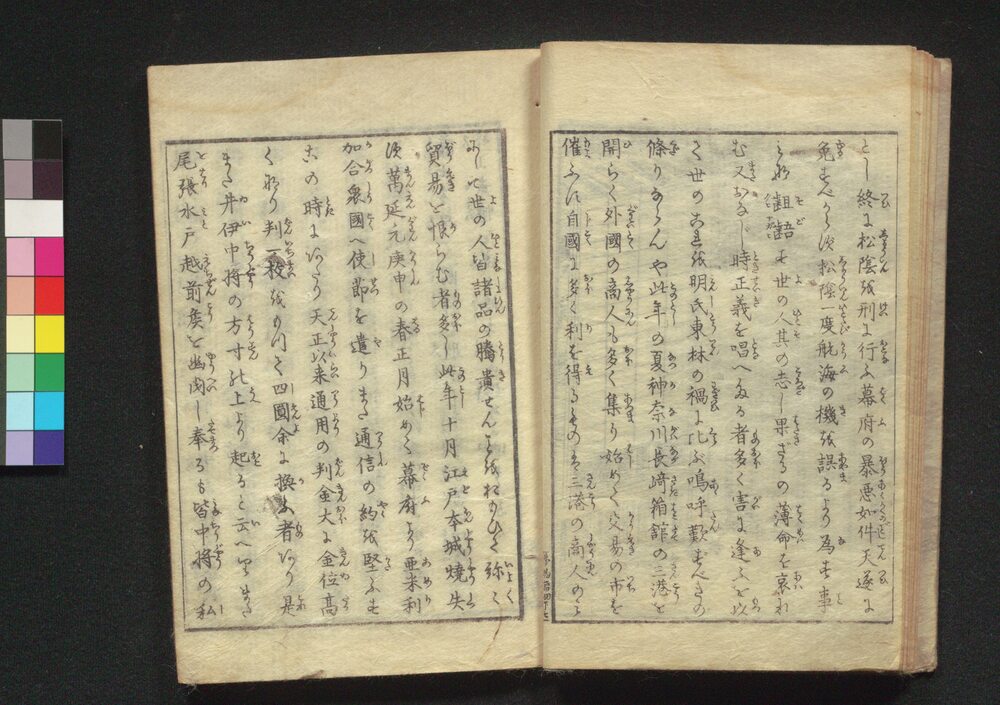 とし終に松陰を刑に行ふ幕府の暴悪如件天遂に
免さべからず松陰一度航海の機を誤るより為す事
みな齟齬す世の人其の志し果ざるの薄命を哀れ
む又おなじ時正義を唱へたる者多く害に逢ふを以
て世のこれを明氏東林の禍に比ぶ嗚呼歎ずべきの
條りならんや此年の夏神奈川長崎箱舘の三港を
開らく外國の商人も多く集り始めて交易の市を
催ふに自國に多く利を得るものは三港の商人のみ
にして世の人皆諸品の騰貴せんことをおもひて弥々
貿易を恨らむ者多し此年十月江戸本城焼失
次萬延元庚申の春正月始めて幕府より亜米利
加合衆國へ使節を遣りまた通信の約を堅ふす
この時にあたり天正以来通用の判金大に金位高
くなり判一枚をもつて四圓余に換る者あり是
また井伊中将の方寸の上より起ると云へりまた
尾張水戸越前矦を幽閉し奉るも皆中将の私